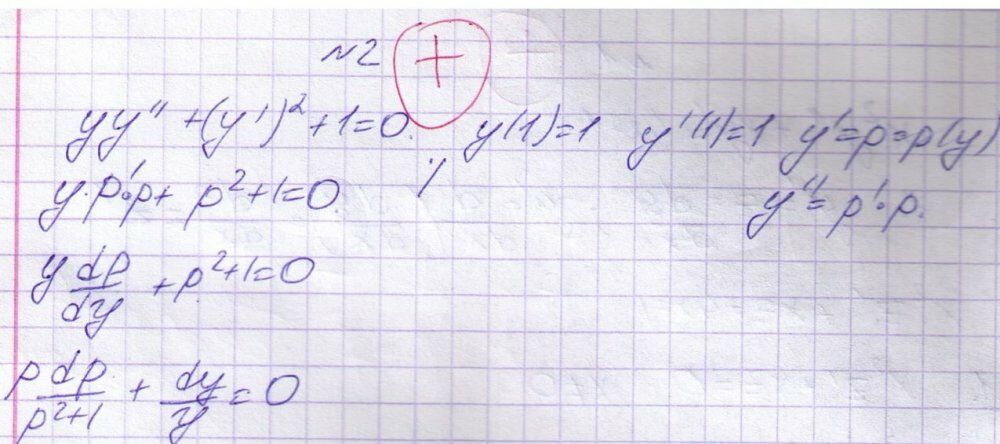 №2 +
yy'' + (y')² + 1 = 0. y(1) = 1 y'(1) = 1 y' = p = p(y)
y·p'·p + p² + 1 = 0. y'' = p'·p.
y dp/dy + p² + 1 = 0
p dp/(p²+1) + dy/y = 0